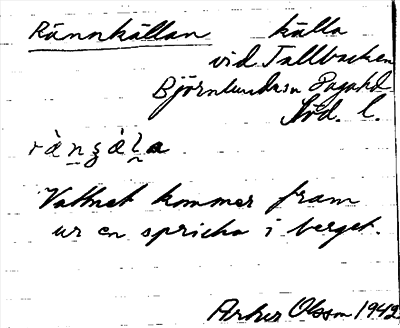 Rännkällan källa
vid Tallbacken
Björnlunda sn
Söd. l.
Vattnet kommer fram
ur en spricka i berget.
Olsson 1942